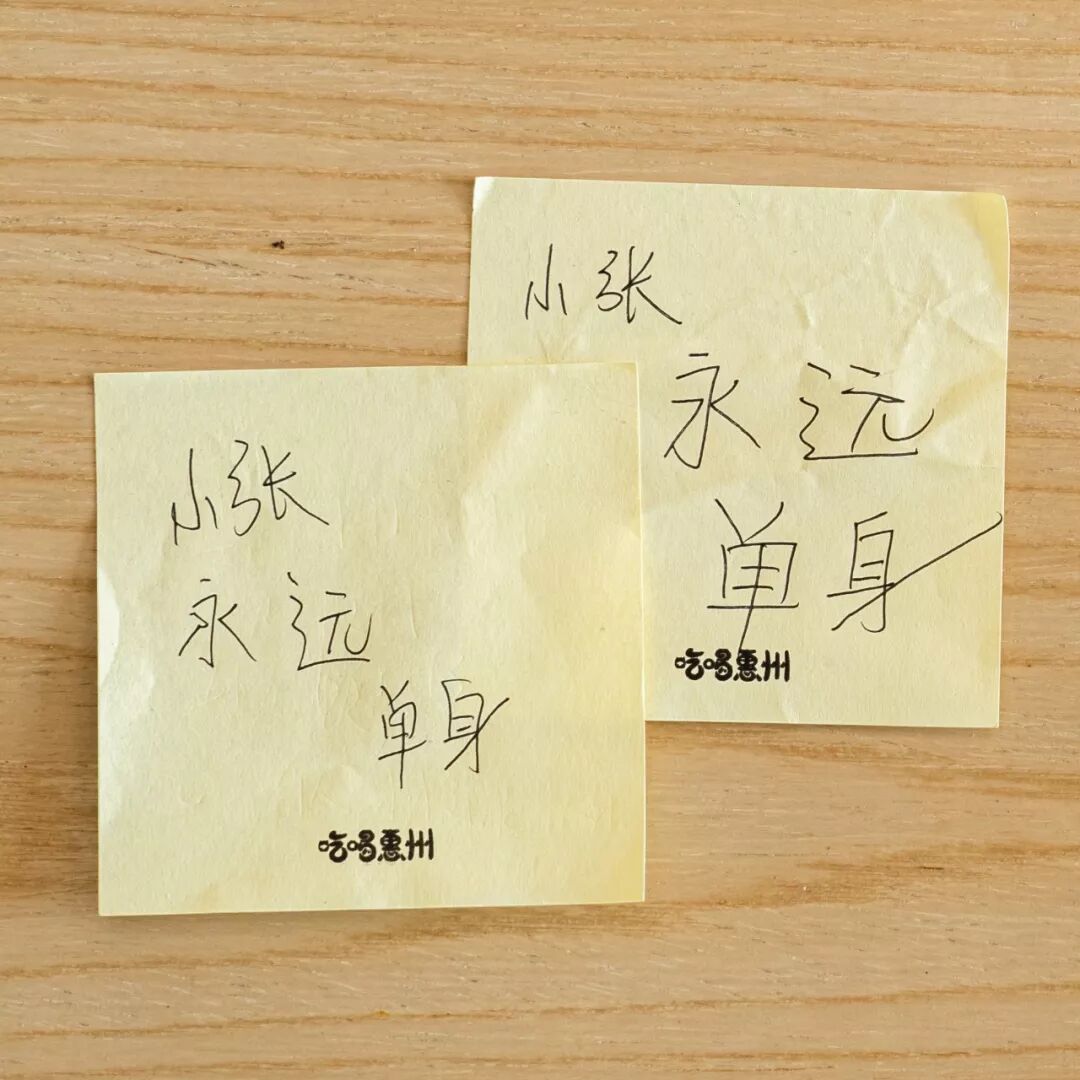 小张
永远
单身
吃喝惠州
小张
永远
单身
吃喝惠州